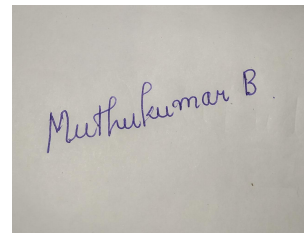 Muthukumar B